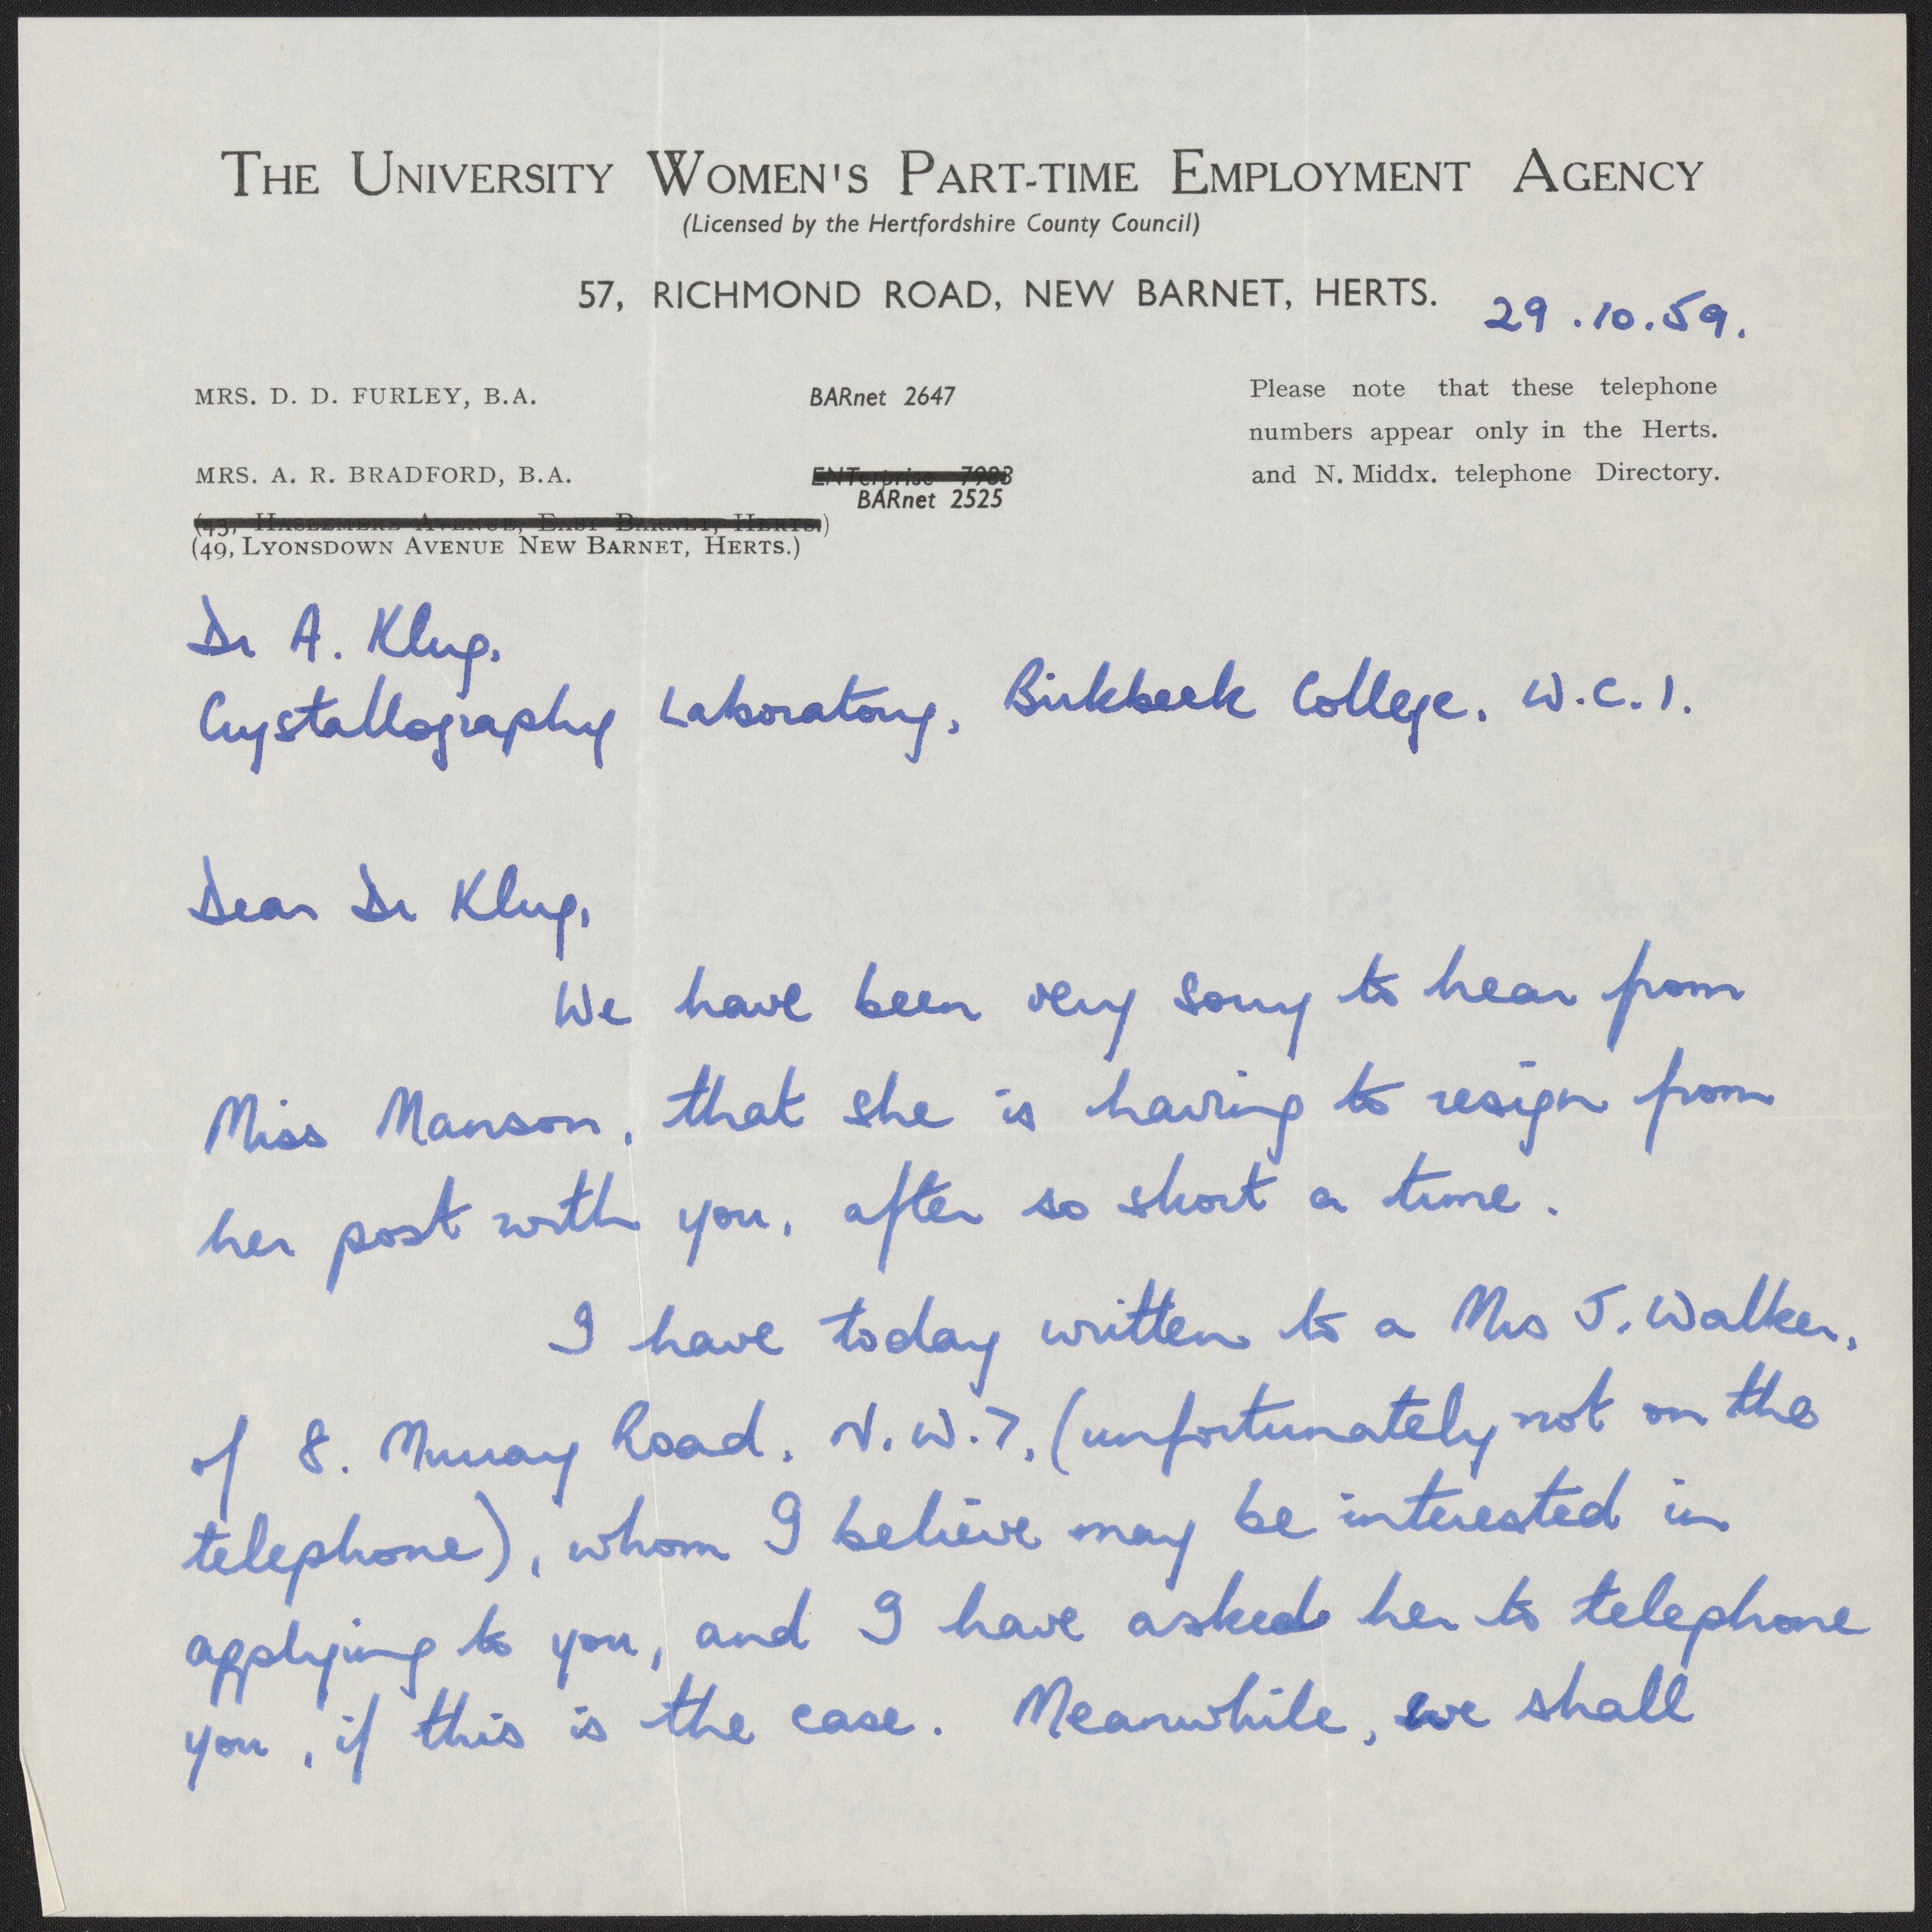 THE UNIVERSITY WOMEN'S PART-TIME EMPLOYMENT AGENCY
(Licensed by the Hertfordshire County Council)
57, RICHMOND ROAD, NEW BARNET, HERTS.
29.10.59.
MRS. D. D. FURLEY, B.A.
BARnet 2647
MRS. A. R. BRADFORD, B.A.
ENTerprise 7983
BARnet 2525
(43, HASLEMERE AVENUE, EAST BARNET, HERTS.)
(49, LYONSDOWN AVENUE NEW BARNET, HERTS.)
Please note that these telephone
numbers appear only in the Herts.
and N. Middx. telephone Directory.
Dr A. Klug.
Crystallography Laboratory, Birkbeck College. W.C.1.
Dear Dr Klug,
We have been very sorry to hear from
Miss Manson, that she is having to resign from
her post with you, after so short a time.
I have today written to a Mrs J. Walker,
of 8. Murray Road, N.W.7, (unfortunately not on the
telephone), whom I believe may be interested in
applying to you, and I have asked her to telephone
you, if this is the case. Meanwhile, we shall